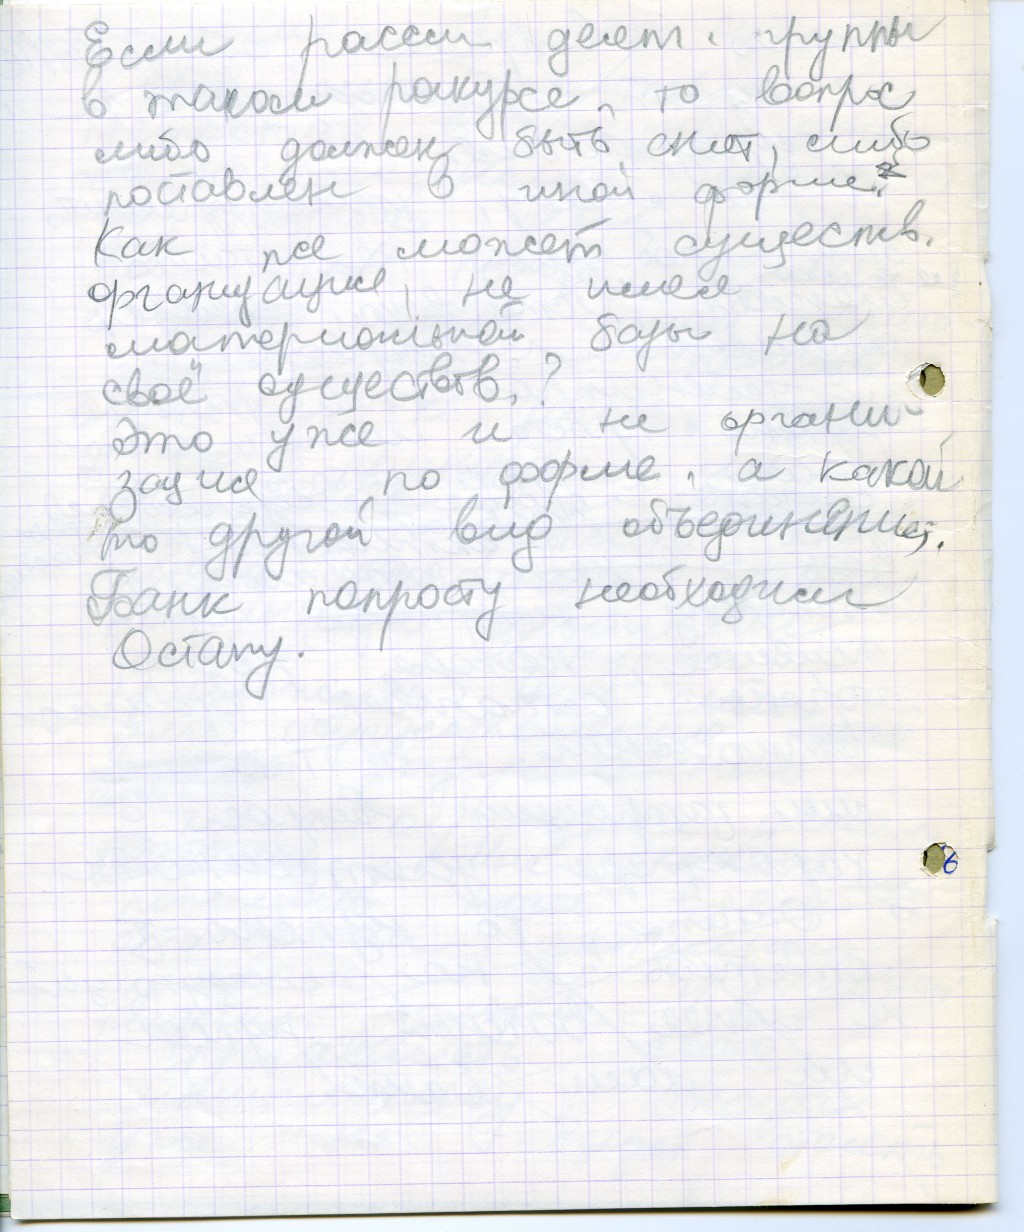 Если рассм. деят. группы
в таком ракурсе, то вопрос
либо должен быть снят, либо
поставлен в иной форме.
Как же может существ.
организация, не имея
материальной базы на
своё существов.?
Это уже и не органи-
зация по форме, а какой
то другой вид объединения.
Банк попросту необходим
Остапу.
6